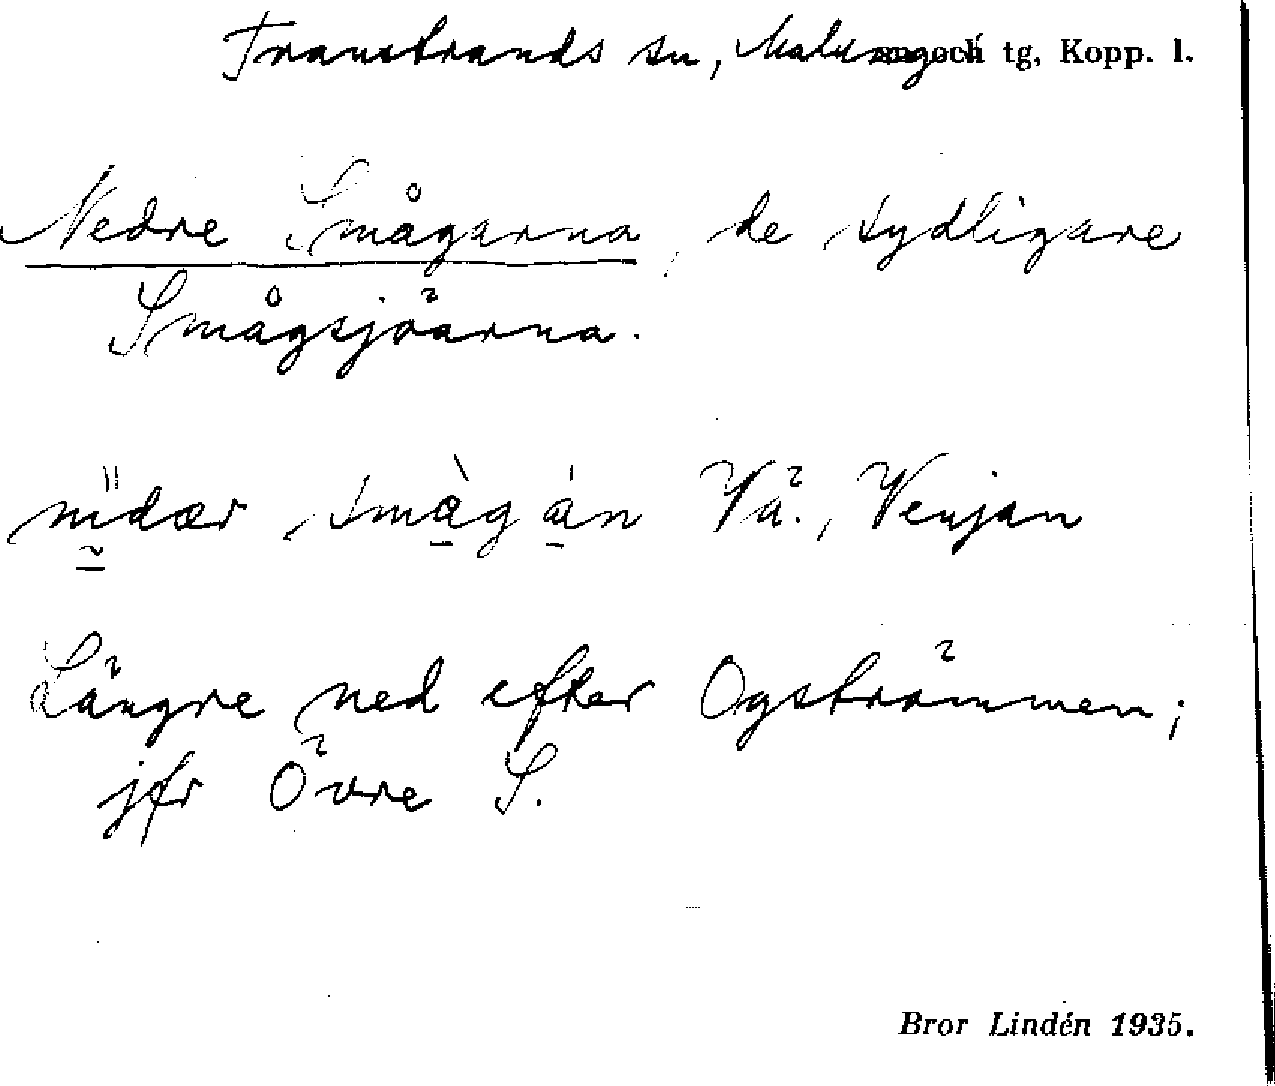 Transtrands sn, Malungs tg, Kopp. l.
Nedre Smågarna, de sydligare
Smågsjöarna.
nidær smågån Vä., Venjan
Längre ned efter Ogströmmen;
jfr Övre S.
Bror Lindén 1935.